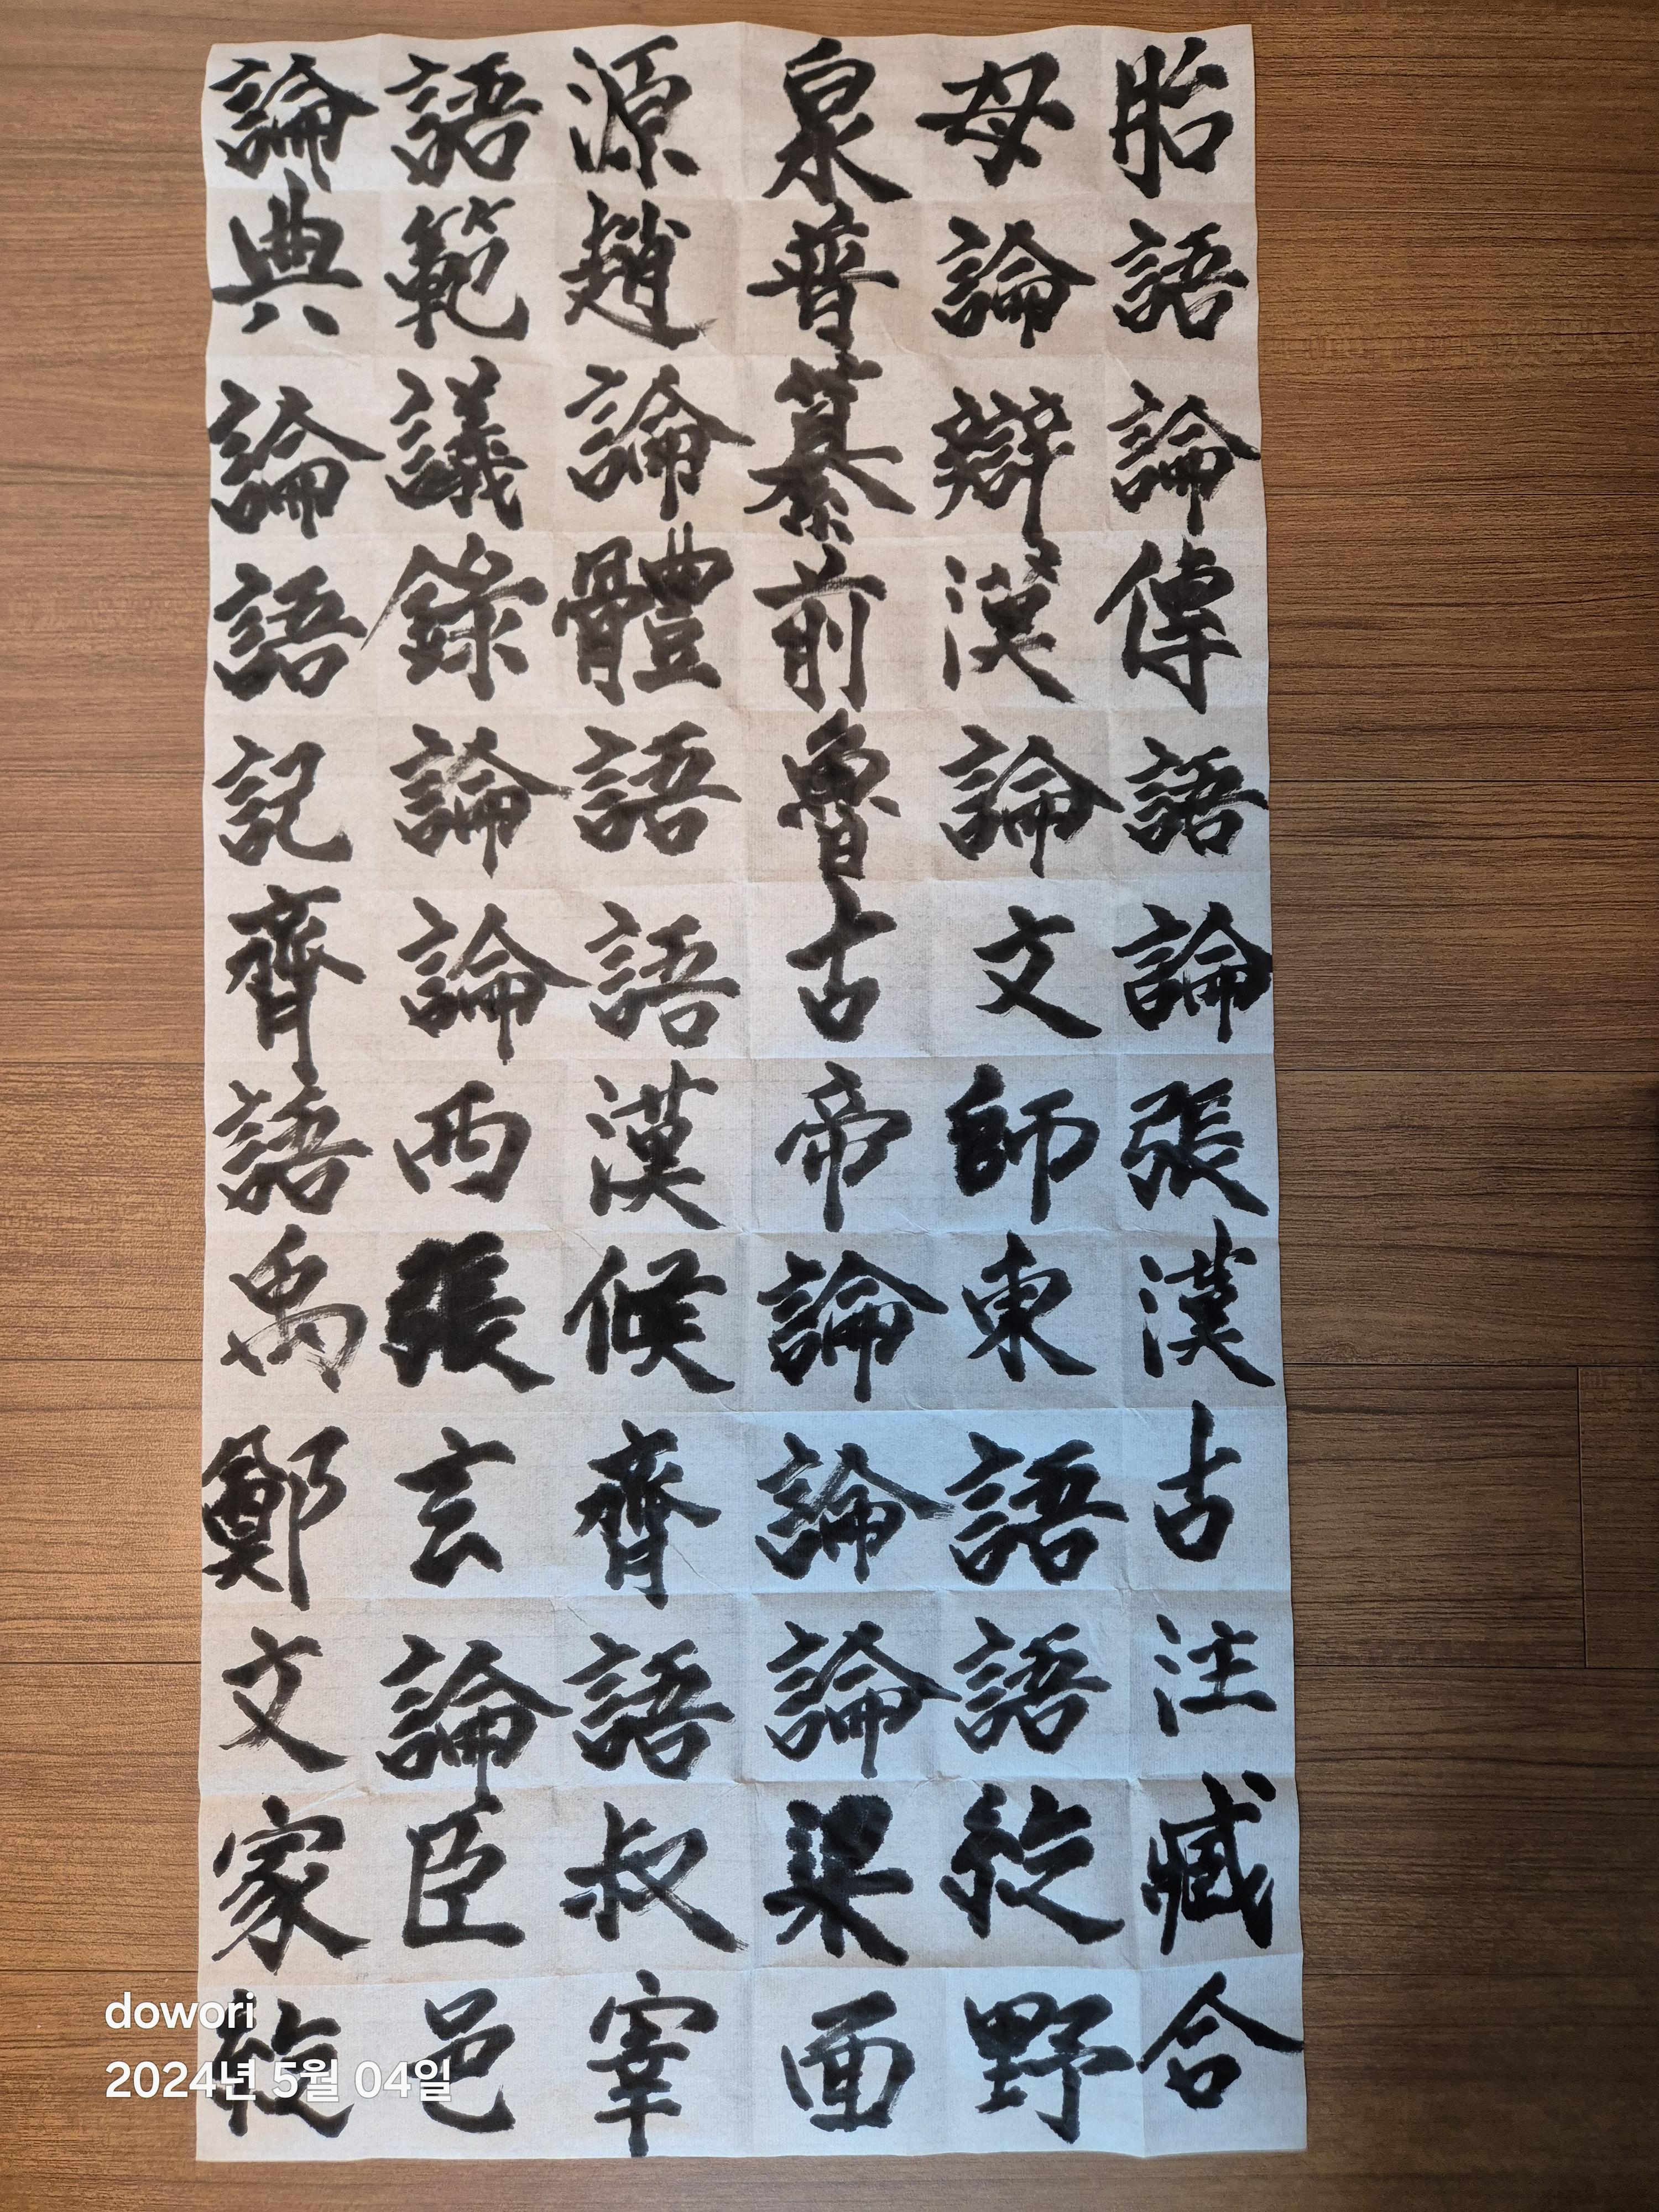 論語源泉母胎
典範趙普論語
論議論纂辯論
語錄體前漢傳
記論語魯論語
齊論語古文論
語西漢帝師張
禹張候論東漢
鄭玄齊論語古
文論語論語注
家臣叔梁紇臧
紇邑宰面野合
dowori
2024년 5월 04일